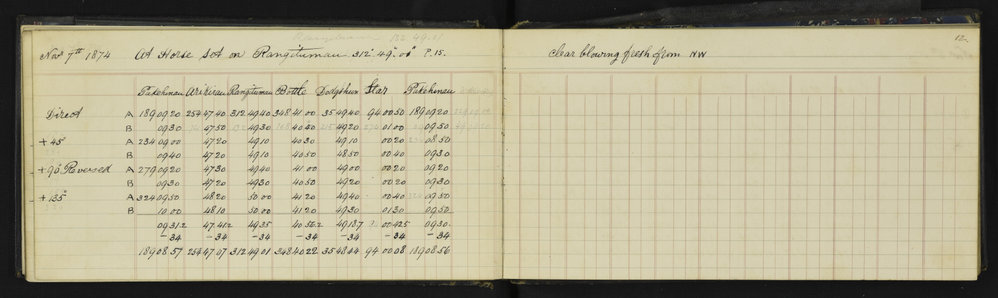 Nov 7th 1874 At Horse Sot on Rangitumau 312° 49' 0" P. 15. clear blowing fresh from NW 12
Pukehinau Rangitumau Bottle Star Pukehinau
Direct A 189 09 20 254 47 40 312 49 40 348 41 00 35 49 40 94 00 50 189 09 20
B 09 30 47 50 49 30 40 50 49 20 01 00 09 50
+ 45° A 234 09 00 47 20 49 10 40 30 49 10 00 20 08 50
B 09 40 47 20 49 10 40 50 48 50 00 40 09 30
+ 90° Reversed A 279 09 20 47 30 49 40 41 00 49 00 00 20 09 20
B 09 30 47 20 49 30 40 50 49 20 00 20 09 30
+ 135° A 324 09 50 48 20 50 00 41 20 49 40 00 40 09 50
B 10 00 48 10 50 00 41 20 49 30 01 30 09 50
09 31.2 47 41.2 49 35 40 50.2 49 18.7 00 42.5 09 30
-34 -34 -34 -34 -34 -34 -34
189 08 57 254 47 07 312 49 01 348 40 22 35 48 44 94 00 08 189 08 56